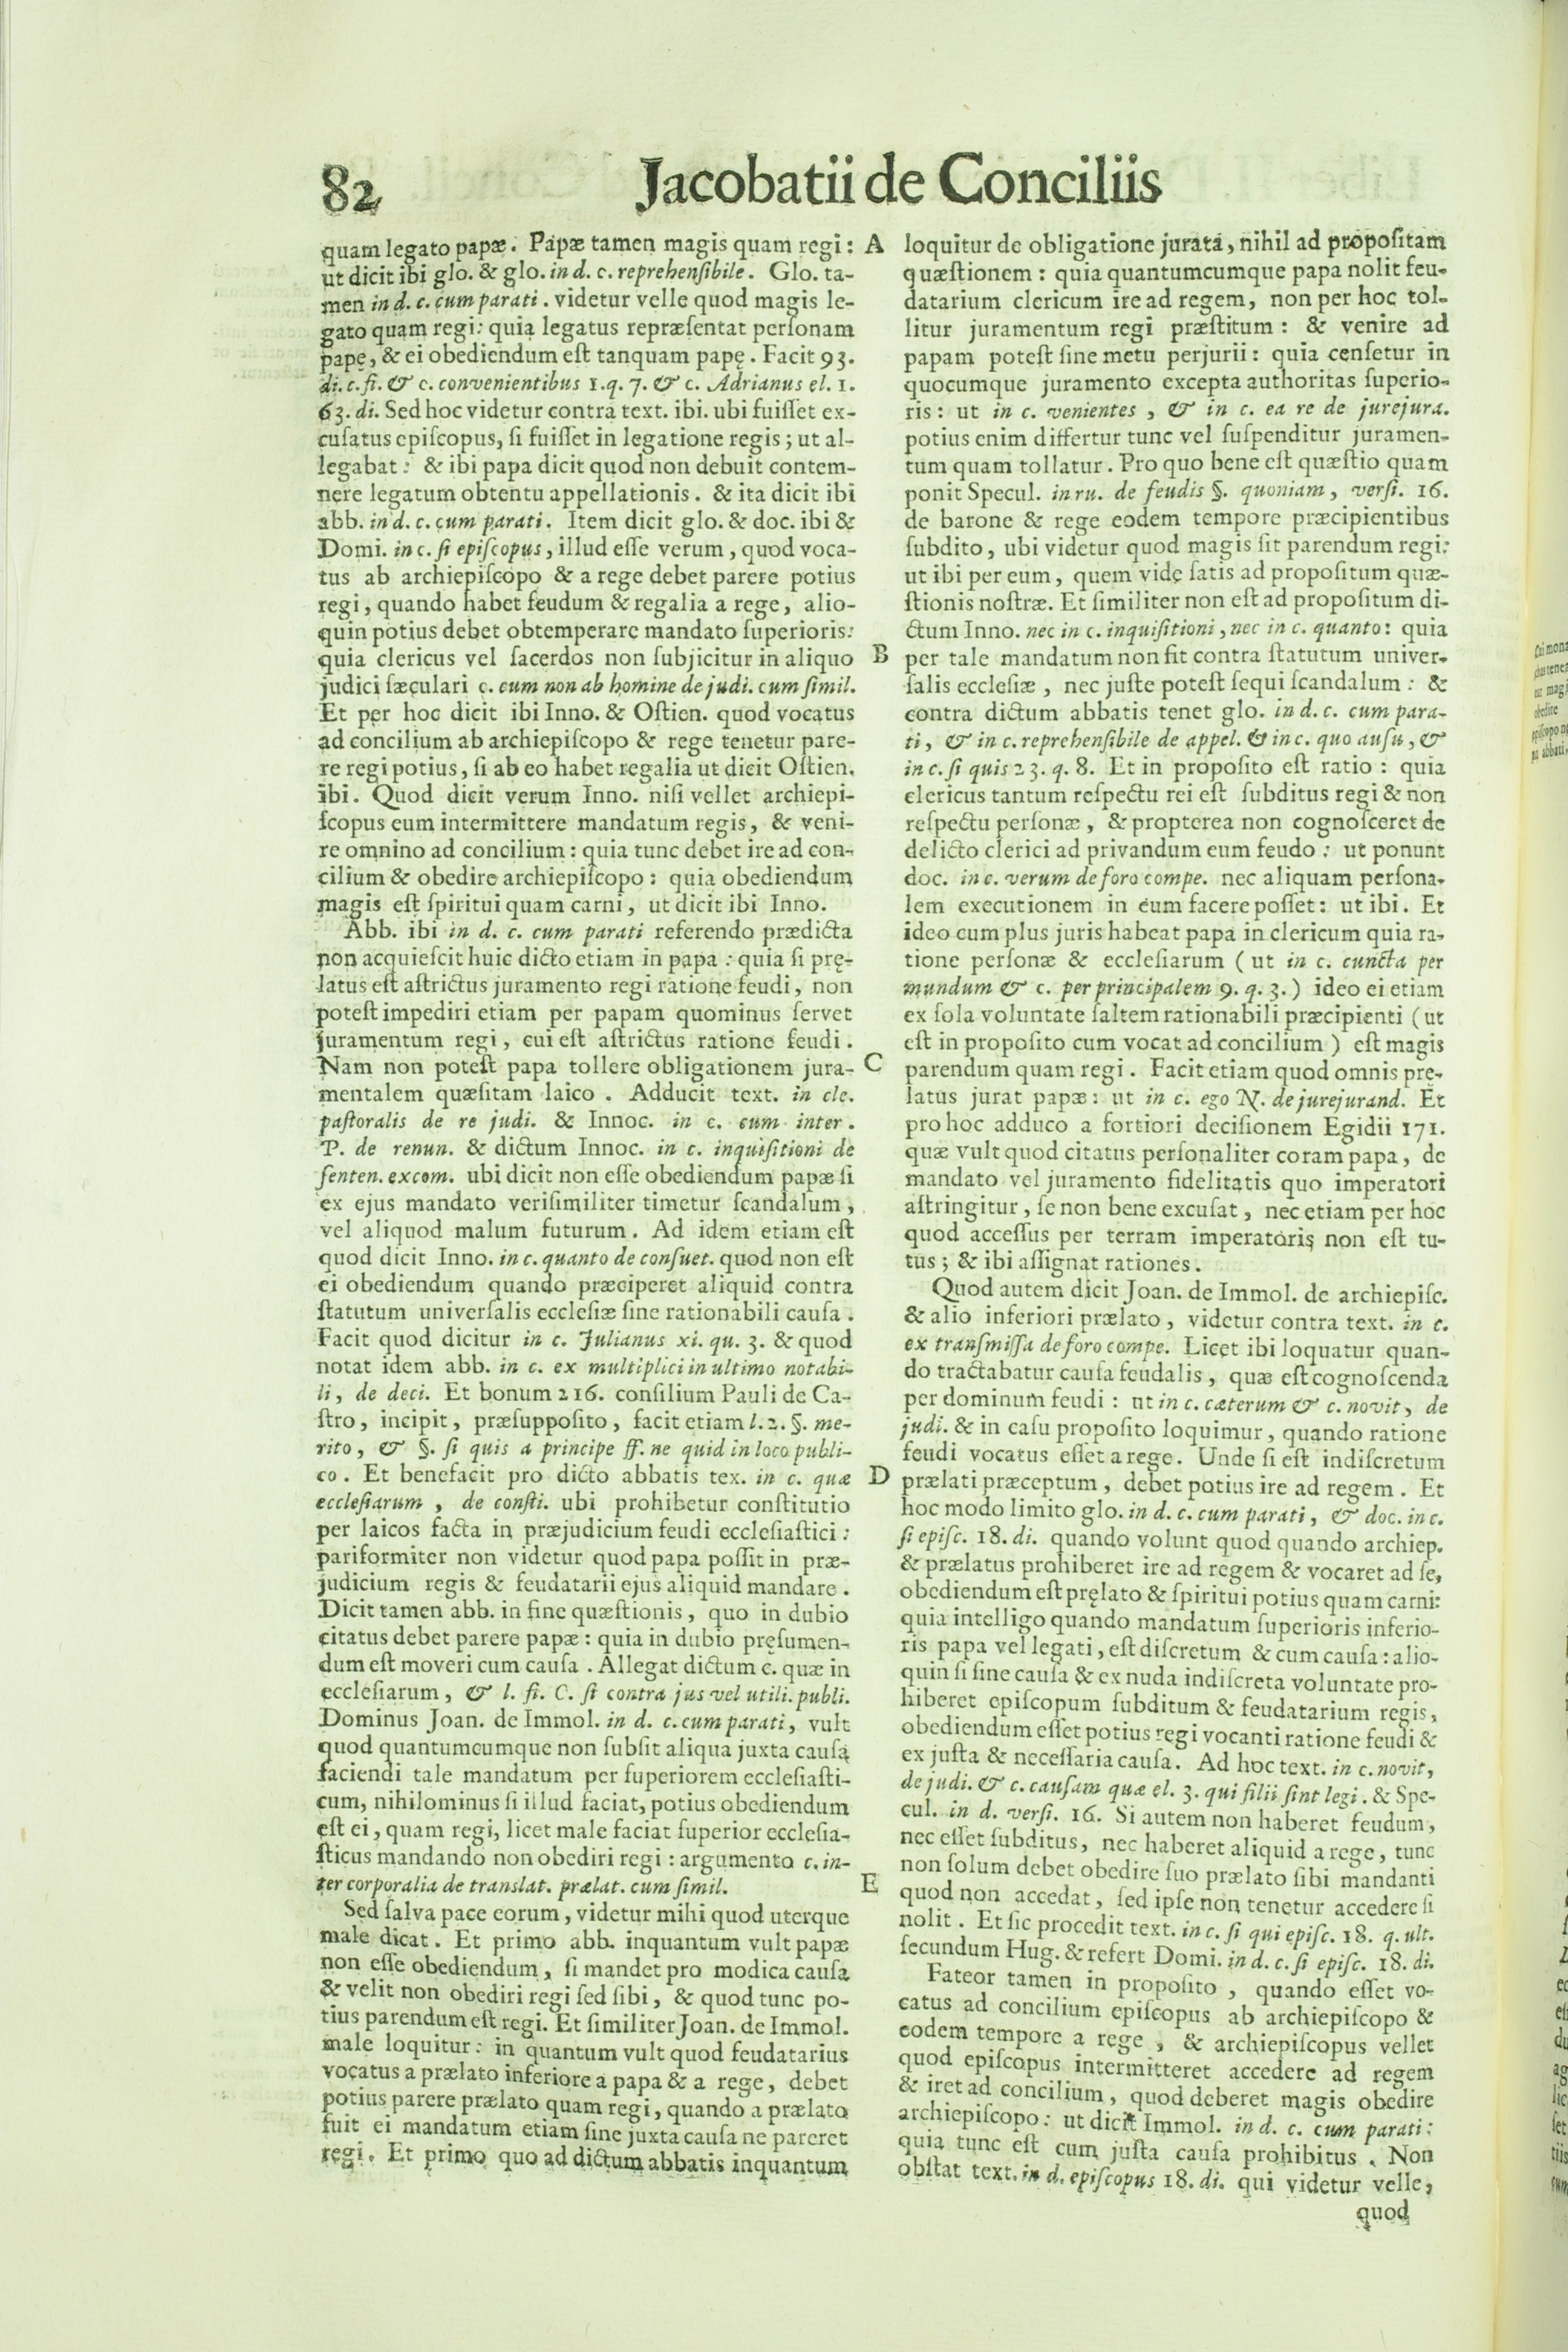 82
Jacobatii de Conciliis
quam legato papæ. Papæ tamen magis quam regi:
ut dicit ibi glo. & glo. in d. c. reprehenſibile. Glo. ta-
men in d. c. cum parati. videtur velle quod magis le-
gato quam regi: quia legatus repræſentat perſonam
papę, & ei obediendum eſt tanquam papę. Facit 93.
di. c. fi. & c. convenientibus 1. q. 7. & c. Adrianus el. 1.
63. di. Sed hoc videtur contra text. ibi. ubi fuiſſet ex-
cuſatus epiſcopus, ſi fuiſſet in legatione regis; ut al-
legabat: & ibi papa dicit quod non debuit contem-
nere legatum obtentu appellationis. & ita dicit ibi
abb. in d. c. cum parati. Item dicit glo. & doc. ibi &
Domi. in c. ſi epiſcopus, illud eſſe verum, quod voca-
tus ab archiepiſcopo & a rege debet parere potius
regi, quando habet feudum & regalia a rege, alio-
quin potius debet obtemperare mandato ſuperioris:
quia clericus vel ſacerdos non ſubjicitur in aliquo
judici ſæculari c. cum non ab homine de judi. cum ſimil.
Et per hoc dicit ibi Inno. & Oſtien. quod vocatus
ad concilium ab archiepiſcopo & rege tenetur pare-
re regi potius, ſi ab eo habet regalia ut dicit Oſtien.
ibi. Quod dicit verum Inno. niſi vellet archiepi-
ſcopus eum intermittere mandatum regis, & veni-
re omnino ad concilium: quia tunc debet ire ad con-
cilium & obedire archiepiſcopo: quia obediendum
magis eſt ſpiritui quam carni, ut dicit ibi Inno.
Abb. ibi in d. c. cum parati referendo prædicta
non acquieſcit huic dicto etiam in papa: quia ſi prę-
latus eſt aſtrictus juramento regi ratione feudi, non
poteſt impediri etiam per papam quominus ſervet
juramentum regi, cui eſt aſtrictus ratione feudi.
Nam non poteſt papa tollere obligationem jura-
mentalem quæſitam laico. Adducit text. in cle.
paſtoralis de re judi. & Innoc. in c. cum inter.
P. de renun. & dictum Innoc. in c. inquiſitioni de
ſenten. excom. ubi dicit non eſſe obediendum papæ ſi
ex ejus mandato veriſimiliter timetur ſcandalum,
vel aliquod malum futurum. Ad idem etiam eſt
quod dicit Inno. in c. quanto de conſuet. quod non eſt
ei obediendum quando præciperet aliquid contra
ſtatutum univerſalis eccleſiæ ſine rationabili cauſa.
Facit quod dicitur in c. Julianus xi. qu. 3. & quod
notat idem abb. in c. ex multiplici in ultimo notabi-
li, de deci. Et bonum 216. conſilium Pauli de Ca-
ſtro, incipit, præſuppoſito, facit etiam l. 2. §. me-
rito, & §. ſi quis a principe ff. ne quid in loco publi-
co. Et benefacit pro dicto abbatis tex. in c. quæ
eccleſiarum, de conſti. ubi prohibetur conſtitutio
per laicos facta in præjudicium feudi eccleſiaſtici:
pariformiter non videtur quod papa poſſit in præ-
judicium regis & feudatarii ejus aliquid mandare.
Dicit tamen abb. in fine quæſtionis, quo in dubio
citatus debet parere papæ: quia in dubio pręſumen-
dum eſt moveri cum cauſa. Allegat dictum c. quæ in
eccleſiarum, & l. fi. C. ſi contra jus vel utili. publi.
Dominus Joan. de Immol. in d. c. cum parati, vult
quod quantumcumque non ſubſit aliqua juxta cauſa
faciendi tale mandatum per ſuperiorem eccleſiaſti-
cum, nihilominus ſi illud faciat, potius obediendum
eſt ei, quam regi, licet male faciat ſuperior eccleſia-
ſticus mandando non obediri regi: argumento c. in-
ter corporalia de translat. prælat. cum ſimil.
Sed ſalva pace eorum, videtur mihi quod uterque
male dicat. Et primo abb. inquantum vult papæ
non eſſe obediendum, ſi mandet pro modica cauſa
& velit non obediri regi ſed ſibi, & quod tunc po-
tius parendum eſt regi. Et ſimiliter Joan. de Immol.
male loquitur: in quantum vult quod feudatarius
vocatus a prælato inferiore a papa & a rege, debet
potius parere prælato quam regi, quando a prælato
fuit ei mandatum etiam ſine juxta cauſa ne pareret
regi. Et primo quo ad dictum abbatis inquantum
A
B
C
D
E
loquitur de obligatione jurata, nihil ad propoſitam
quæſtionem: quia quantumcumque papa nolit feu-
datarium clericum ire ad regem, non per hoc tol-
litur juramentum regi præſtitum: & venire ad
papam poteſt ſine metu perjurii: quia cenſetur in
quocumque juramento excepta authoritas ſuperio-
ris: ut in c. venientes, & in c. ea re de jurejura.
potius enim differtur tunc vel ſuſpenditur juramen-
tum quam tollatur. Pro quo bene eſt quæſtio quam
ponit Specul. in ru. de feudis §. quoniam, verſi. 16.
de barone & rege eodem tempore præcipientibus
ſubdito, ubi videtur quod magis ſit parendum regi:
ut ibi per eum, quem vide ſatis ad propoſitum quæ-
ſtionis noſtræ. Et ſimiliter non eſt ad propoſitum di-
ctum Inno. nec in c. inquiſitioni, nec in c. quanto: quia
per tale mandatum non fit contra ſtatutum univer-
ſalis eccleſiæ, nec juſte poteſt ſequi ſcandalum: &
contra dictum abbatis tenet glo. in d. c. cum para-
ti, & in c. reprehenſibile de appel. & in c. quo auſu, &
in c. ſi quis 23. q. 8. Et in propoſito eſt ratio: quia
clericus tantum reſpectu rei eſt ſubditus regi & non
reſpectu perſonæ, & propterea non cognoſceret de
delicto clerici ad privandum eum feudo: ut ponunt
doc. in c. verum de foro compe. nec aliquam perſona-
lem executionem in eum facere poſſet: ut ibi. Et
ideo cum plus juris habeat papa in clericum quia ra-
tione perſonæ & eccleſiarum (ut in c. cuncta per
mundum & c. per principalem 9. q. 3.) ideo ei etiam
ex ſola voluntate ſaltem rationabili præcipienti (ut
eſt in propoſito cum vocat ad concilium) eſt magis
parendum quam regi. Facit etiam quod omnis prę-
latus jurat papæ: ut in c. ego N. de jurejurand. Et
pro hoc adduco a fortiori deciſionem Egidii 171.
quæ vult quod citatus perſonaliter coram papa, de
mandato vel juramento fidelitatis quo imperatori
aſtringitur, ſe non bene excuſat, nec etiam per hoc
quod acceſſus per terram imperatoris non eſt tu-
tus; & ibi aſſignat rationes.
Quod autem dicit Joan. de Immol. de archiepiſc.
& alio inferiori prælato, videtur contra text. in c.
ex tranſmiſſa de foro compe. Licet ibi loquatur quan-
do tractabatur cauſa feudalis, quæ eſt cognoſcenda
per dominum feudi: ut in c. cæterum & c. novit, de
judi. & in caſu propoſito loquimur, quando ratione
feudi vocatus eſſet a rege. Unde ſi eſt indiſcretum
prælati præceptum, debet potius ire ad regem. Et
hoc modo limito glo. in d. c. cum parati, & doc. in c.
ſi epiſc. 18. di. quando volunt quod quando archiep.
& prælatus prohiberet ire ad regem & vocaret ad ſe,
obediendum eſt pręlato & ſpiritui potius quam carni:
quia intelligo quando mandatum ſuperioris inferio-
ris papa vel legati, eſt diſcretum & cum cauſa: alio-
quin ſi ſine cauſa & ex nuda indiſcreta voluntate pro-
hiberet epiſcopum ſubditum & feudatarium regis,
obediendum eſſet potius regi vocanti ratione feudi &
ex juſta & neceſſaria cauſa. Ad hoc text. in c. novit,
de judi. & c. cauſam quæ el. 3. qui filii ſint legi. & Spe-
cul. in d. verſi. 16. Si autem non haberet feudum,
nec eſſet ſubditus, nec haberet aliquid a rege, tunc
non ſolum debet obedire ſuo prælato ſibi mandanti
quod non accedat, ſed ipſe non tenetur accedere ſi
nolit. Et ſic procedit text. in c. ſi qui epiſc. 18. q. ult.
ſecundum Hug. & refert Domi. in d. c. ſi epiſc. 18. di.
Fateor tamen in propoſito, quando eſſet vo-
catus ad concilium epiſcopus ab archiepiſcopo &
eodem tempore a rege, & archiepiſcopus vellet
quod epiſcopus intermitteret accedere ad regem
& iret ad concilium, quod deberet magis obedire
archiepiſcopo: ut dicit Immol. in d. c. cum parati:
quia tunc eſt cum juſta cauſa prohibitus. Non
obſtat text. in d. epiſcopus 18. di. qui videtur velle,
quod